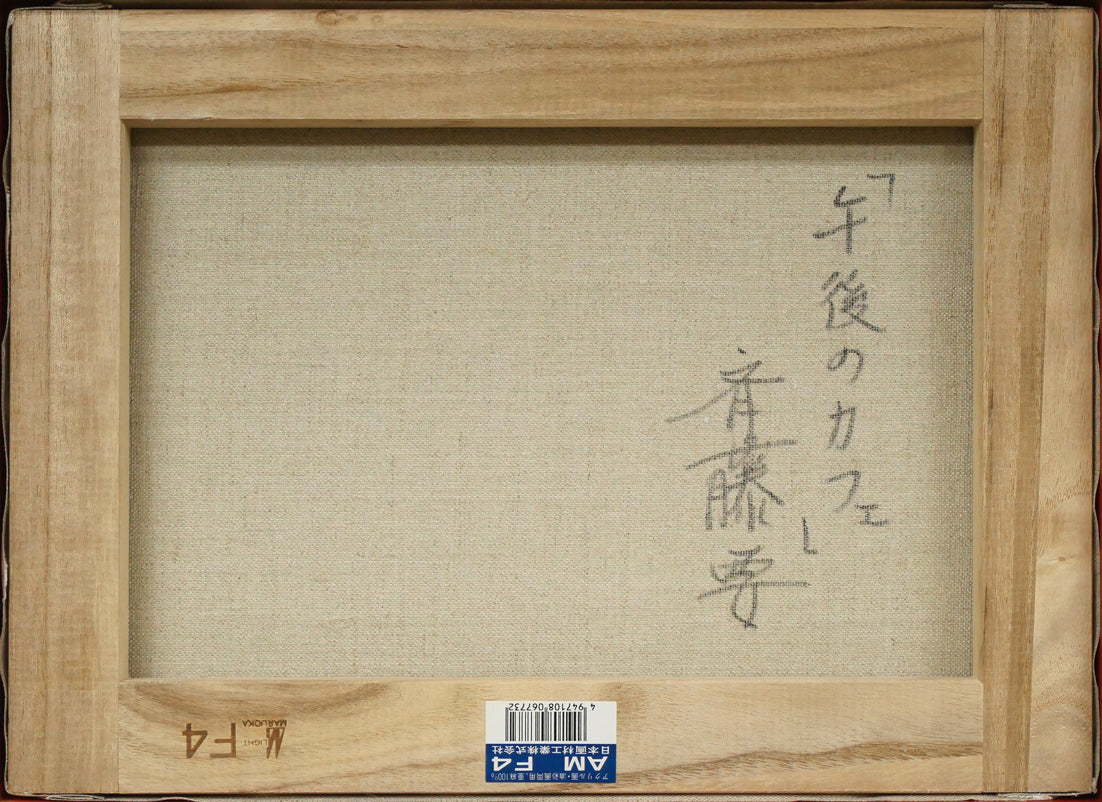 「午後のカフェ」
斉藤
LIGHT
MARUOKA
F4
アクリル画・油彩画両用、亜麻100%
AM F4
日本画材工業株式会社
4 947108 067732